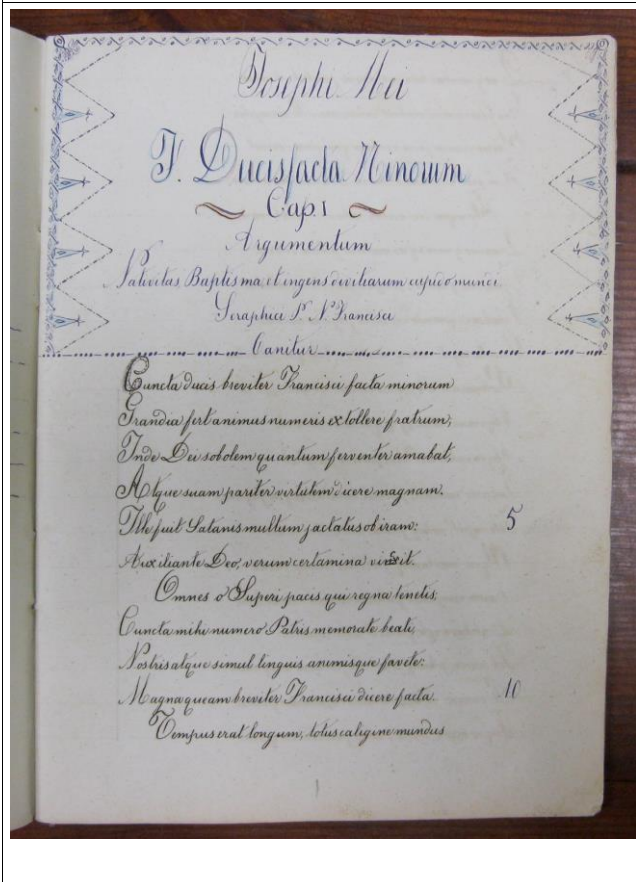 Josephi Mei
F. Ducis facta Minorum
Cap. 1
Argumentum
Nativitas, Baptisma, et ingens divitiarum cupido mundi
Seraphici P. N. Francisci
Canitur
Cuncta ducis breviter Francisci facta minorum
Grandia fert animus numeris extollere fratrum;
Inde Dei sobolem quantum ferventer amabat,
Atque suam pariter virtutem dicere magnam.
Ille fuit Satanis multum jactatus ob iram: 5
Auxiliante Deo, verum certamina vinsit.
Omnes o Superi pacis qui regna tenetis,
Cuncta mihi numero Patris memorate beati,
Nostris atque simul linguis animisque favete:
Magna queam breviter Francisci dicere facta. 10
Tempus erat longum, totus caligine mundus
1